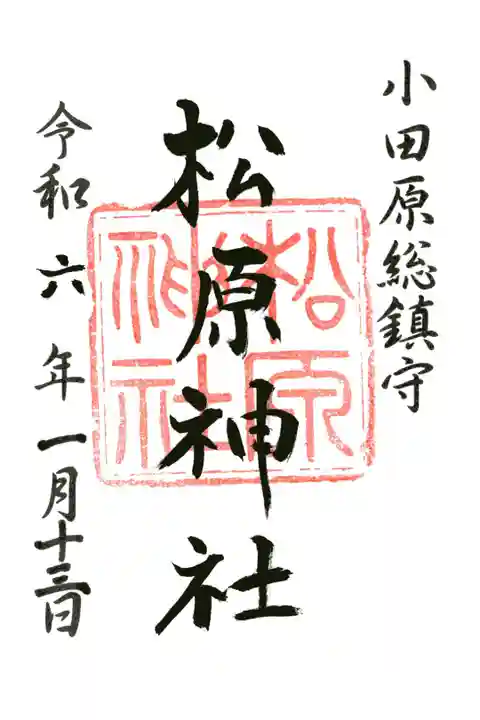 小田原総鎮守
松原神社
令和六年一月十三日
松原
神社